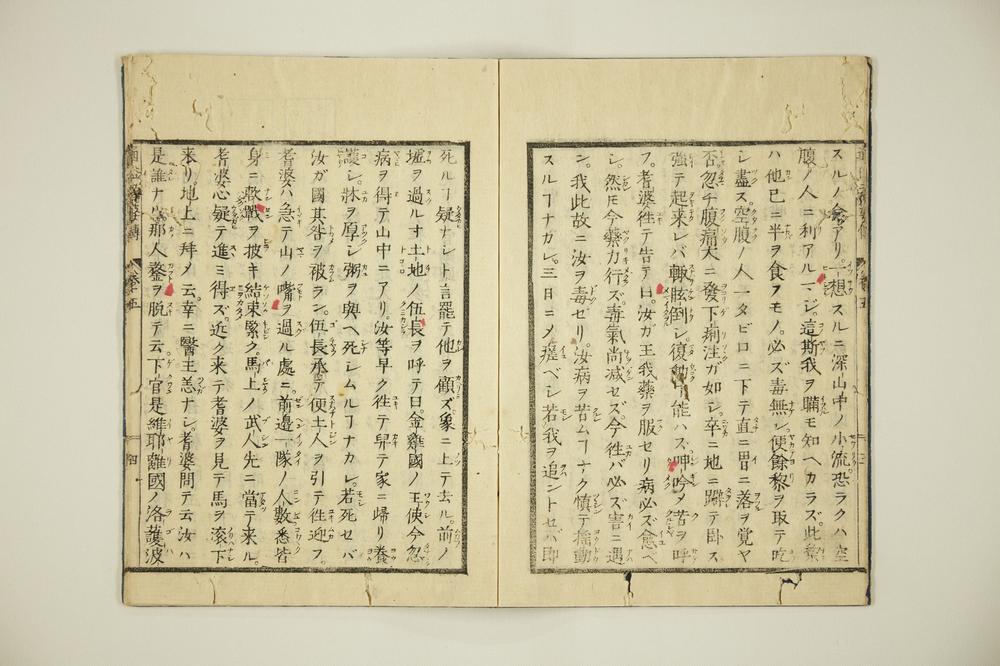 スルノ念アリ。一想スルニ深山中ノ小流恐ラクハ空
腹ノ人ニ利アルマジ。這斯我ヲ瞞モ知ヘカラズ。此
ハ他已ニ半ヲ食フモノ。必ズ毒無シ。便餘黎ヲ取テ吃
シ盡ス。空腹ノ人一タビロニ下テ直ニ胃ニ落ヲ覚ヤ
否忽チ腹痛大ニ發下痢注ガ如シ。卒ニ地ニ躃テ臥ス
強テ起来レバ輙眩倒シ。復動ヿ能ハズ呻吟メ苦ヲ呼
フ。耆婆徃テ告テ曰。汝ガ王我藥ヲ服セリ病必ズ愈ベ
シ。然𪜈今藥力行ズ。毒氣尚減セズ。今徃バ必ズ害ニ遇
ン。我此故ニ汝ヲ毒ゼリ。汝病ヲ苦ムヿナク慎テ揺動
スルヿナカレ。三日ニメ瘥ベシ若我ヲ追ントセバ即
死ルヿ疑ナシト言罷テ他ヲ顧ズ象ニ上テ去ル。前ノ
墟ヲ過ル寸土地ノ伍長ヲ呼テ曰。金雞國ノ王使今忽
病ヲ得テ山中ニアリ。汝等早ク徃テ舁テ家ニ歸リ養
護シ。牀ヲ厚シ粥ヲ與ヘ死シムルヿナカレ。若死セバ
汝ガ國其咎ヲ被ラン。伍長承テ便土人ヲ引テ徃迎フ。
耆婆ハ急テ山ノ嘴ヲ過ル處ニ。前邊一隊ノ人數悉皆
身ニ戰ヲ披キ結束緊ク。馬上ノ武人先ニ當テ来ル。
耆婆心疑テ進ミ得ズ。近ク来テ耆婆ヲ見テ馬ヲ滚下
来リ。地上ニ拜メ云。幸ニ醫王恙ナシ。耆婆問テ云汝ハ
是誰ナルゾ那人鍪ヲ脱テ云下官是維耶離國ノ洛護波